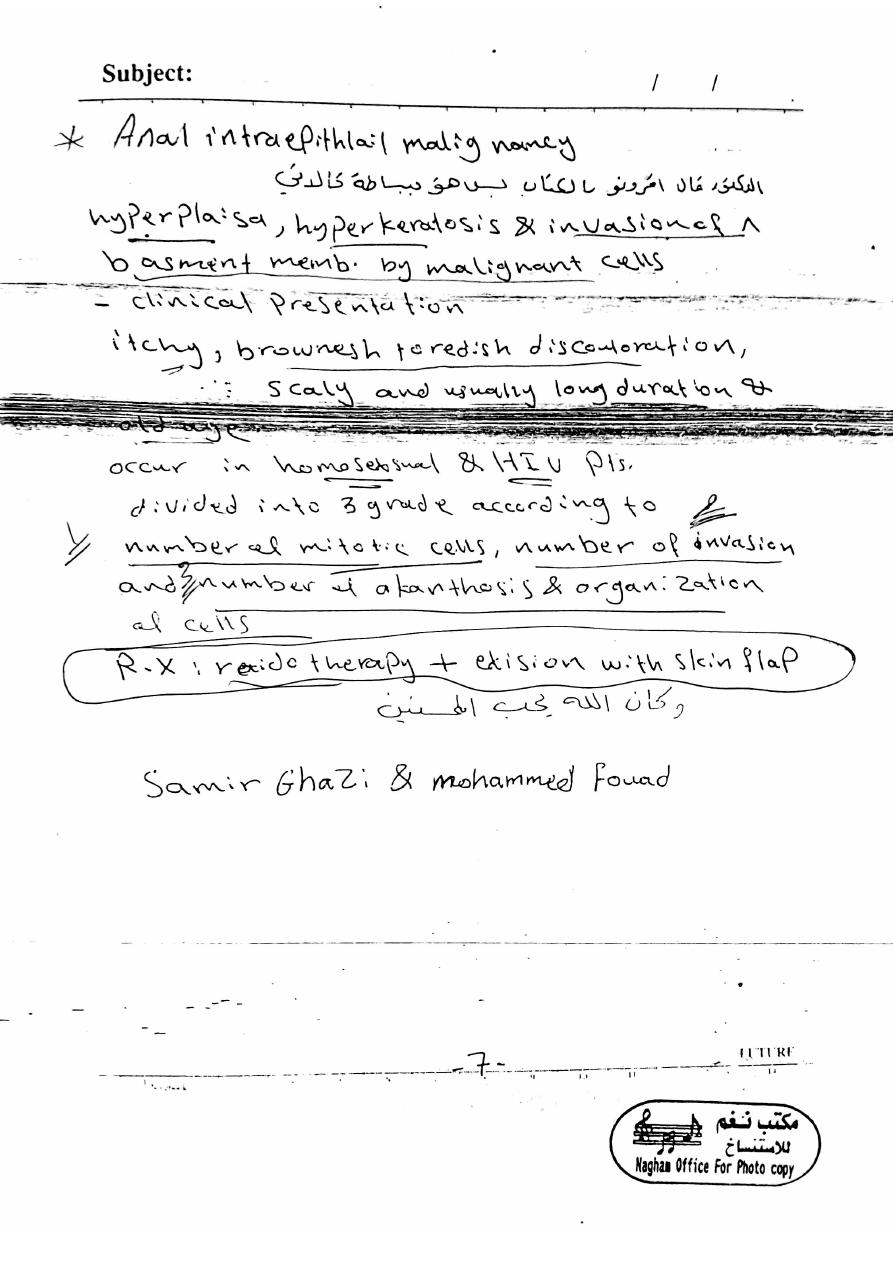 Subject: / /
* Anal intraepithlail malignancy
الدكتور قال اقروو بالكتاب بس هو ببساطة كالاتي
hyperplaisa, hyperkeratosis & invasion of
basment memb. by malignant cells
- clinical presentation
itchy, brownesh to redish discoularation,
scaly and usually long duration &
old age
occur in homosexsual & HIV pts.
divided into 3 grade according to
number of mitotic cells, number of invasion
and number of akanthosis & organization
of cells
R.X : raido therapy + exision with skin flap
وكان الله يحب المحسنين
Samir Ghazi & mohammed fouad
-7-
FUTURE
مكتب نغم
للاستنساخ
Nagham Office For Photo copy